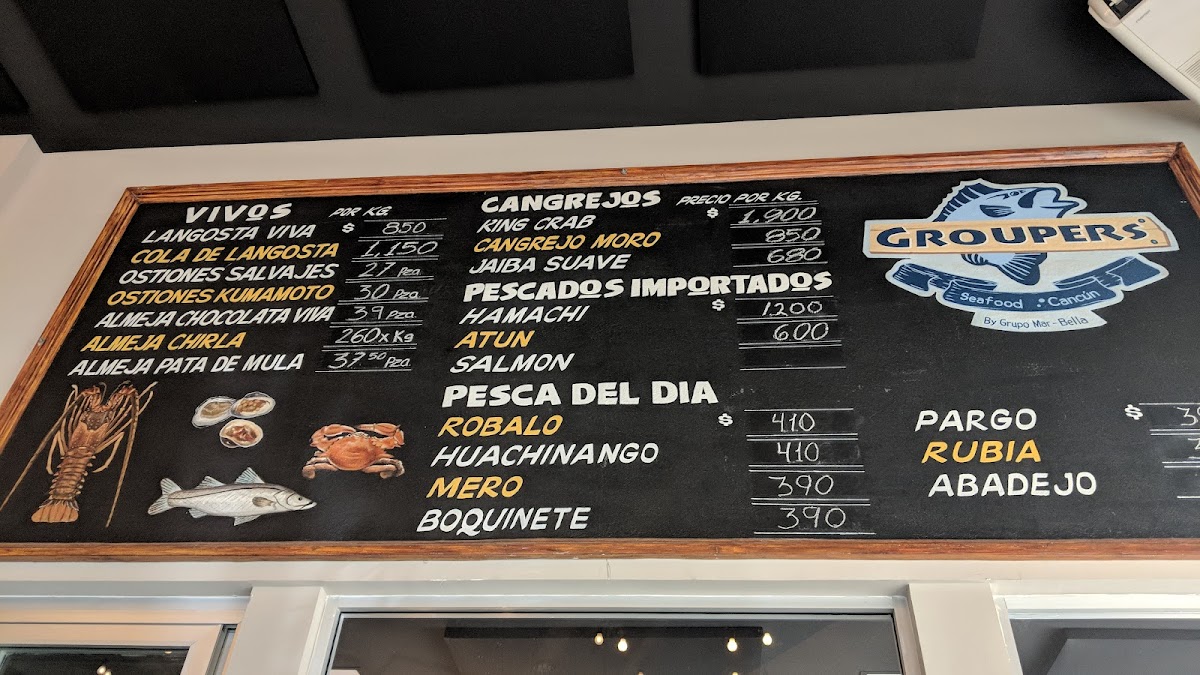 VIVOS POR KG.
LANGOSTA VIVA $ 850
COLA DE LANGOSTA 1,150
OSTIONES SALVAJES 27 Pza.
OSTIONES KUMAMOTO 30 Pza.
ALMEJA CHOCOLATA VIVA 39 Pza.
ALMEJA CHIRLA 260 x Kg
ALMEJA PATA DE MULA 37.50 Pza.
CANGREJOS PRECIO POR KG.
KING CRAB $ 1,900
CANGREJO MORO 850
JAIBA SUAVE 680
PESCADOS IMPORTADOS
HAMACHI $ 1200
ATUN 600
SALMON
PESCA DEL DIA
ROBALO $ 410
HUACHINANGO 410
MERO 390
BOQUINETE 390
GROUPERS
Seafood Cancún
By Grupo Mar-Bella
PARGO $
RUBIA
ABADEJO